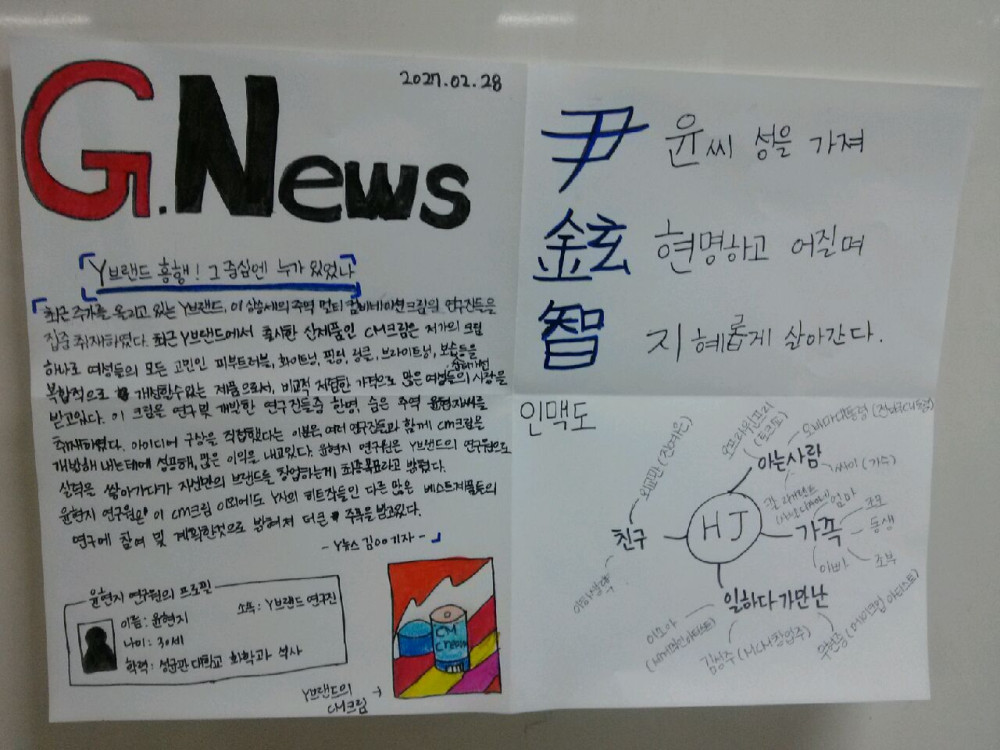 2027.02.28
G.News
Y브랜드 흥행! 그 중심엔 누가 있었나
최근 주가를 올리고 있는 Y브랜드, 이 상승세의 주역 멀티 컴비네이션크림의 연구진들을
집중 취재하였다. 최근 Y브랜드에서 출시한 신제품인 CM크림은 저가의 크림
하나로 여성들의 모든 고민인 피부트러블, 화이트닝, 필링, 링클, 브라이트닝, 보습등을
복합적으로 개선할수있는 제품으로서, 비교적 저렴한 가격으로 많은 여성들의 사랑을
받고있다. 이 크림을 연구및 개발한 연구진들중 한명, 숨은 주역 윤현지씨를
취재하였다. 아이디어 구상을 직접했다는 이분은, 여러 연구진들과 함께 CM크림을
개발해 내는데에 성공해, 많은 이익을 내고있다. 윤현지 연구원은 Y브랜드의 연구원으로
실력을 쌓아가다가 자신만의 브랜드를 창업하는게 최종목표라고 밝혔다.
윤현지 연구원은 이 CM크림 이외에도 Y사의 히트작들인 다른 많은 베스트제품들의
연구에 참여 및 계획한것으로 밝혀져 더욱 주목을 받고있다.
- Y뉴스 김00기자 -
윤현지 연구원의 프로필
이름: 윤현지
소속: Y브랜드 연구진
나이: 30세
학력: 성균관대학교 화학과 석사
CM
Cream
Y브랜드의
CM크림
尹 윤씨 성을 가져
鉉 현명하고 어질며
智 지혜롭게 살아간다.
인맥도
HJ
친구
외교관 (진예은)
아는사람
오프라윈프리
(토크쇼)
오바마대통령
싸이 (가수)
칼 라거펠트
가족
엄마
조모
동생
조부
아빠
일하다가만난
김상주
우현증 (메이크업 아티스트)